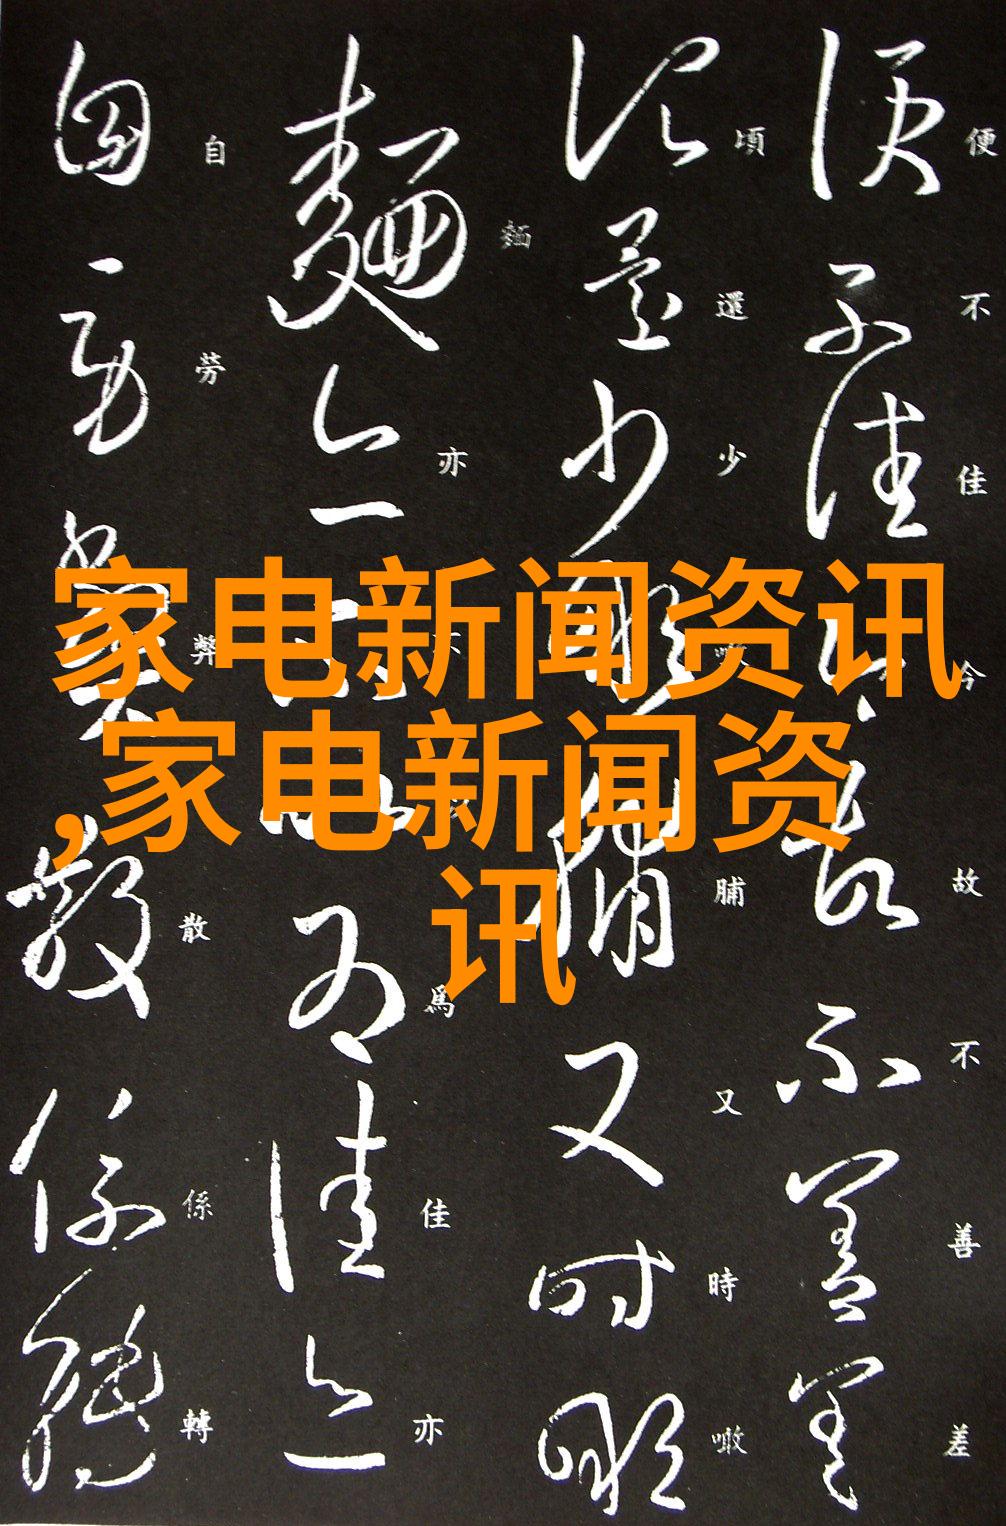 家电新闻资讯
,家电新闻资
讯
便不佳今故不善差
頃還少噉脯又時噉
麵亦不爲佳亦
自勞弊散係轉